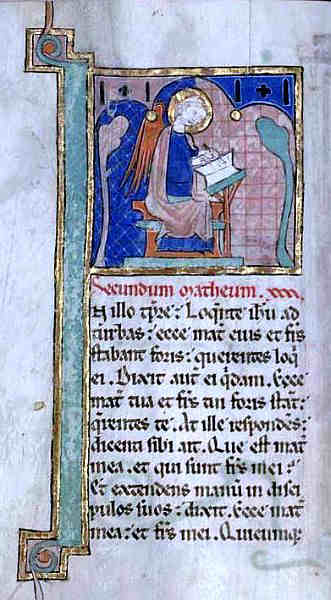 Secundum matheum. xxx.
N illo tp̄re: Loquēte ih̄u ad
turbas: ecce mat̄ eius et fr̄s
stabant foris: querentes loq̄
ei. Dixit aut̄ ei q̄dam. Ecce
mat̄ tua et fr̄s tui foris stāt:
q̄rentes te. At ille respondens:
dicenti sibi ait. Que est mat̄
mea. et qui sunt fr̄s mei:
Et extendens manū in disci
pulos suos: dixit. Ecce mat̄
mea: et fr̄s mei. Quicumqꝫ